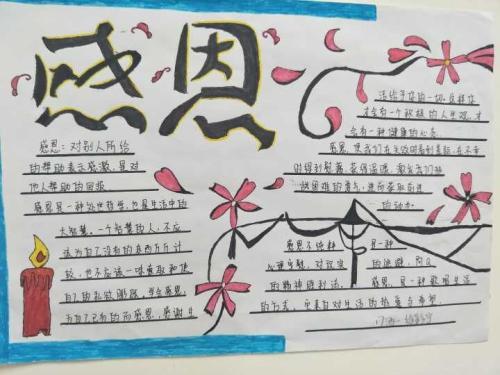 感恩
感恩：对别人所给
的帮助表示感激，是对
他人帮助的回报
感恩是一种处世哲学，也是生活中的
大智慧。一个智慧的人，不应
该为自己没有的东西斤斤计
较，也不应该一味索取和使
自己的私欲膨胀，学会感恩，
为自己已有的而感恩，感谢生
活给予你的一切。这样你
才会有一个积极的人生观，才
会有一种健康的心态。
感恩，使我们在失败时看到差距，在不幸
时得到慰藉，获得温暖，激发我们挑
战困难的勇气，进而获取前进
的动力。
感恩不纯粹是一种
心理安慰，对现实的逃避，阿Q
的精神胜利法。感恩，是一种歌唱生活
的方式，它来自对生活的热爱与希望。